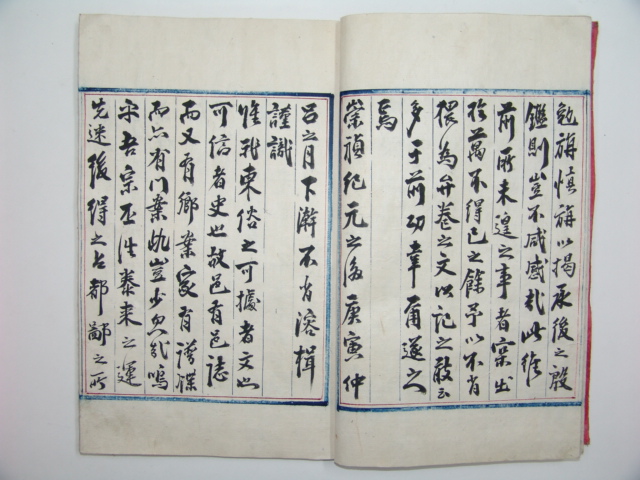 勉旃愼旃以揭承後之殷
鑑則豈不咸感哉此後
前所未遑之事者寔出
於萬不得已之餘予以不肖
猥爲弁卷之文以記之敢云
多于前功韋甫遂之
焉
崇禎紀元之後庚寅仲
呂之月下澣不肖溶楫
謹識
惟我東俗之可據者文也
可信者史也故邑有邑誌
而又有鄕案家有譜牒
而亦有門案此豈少忽哉嗚
乎吾宗丕泄泰來之運
先迷後得之占都鄙之所